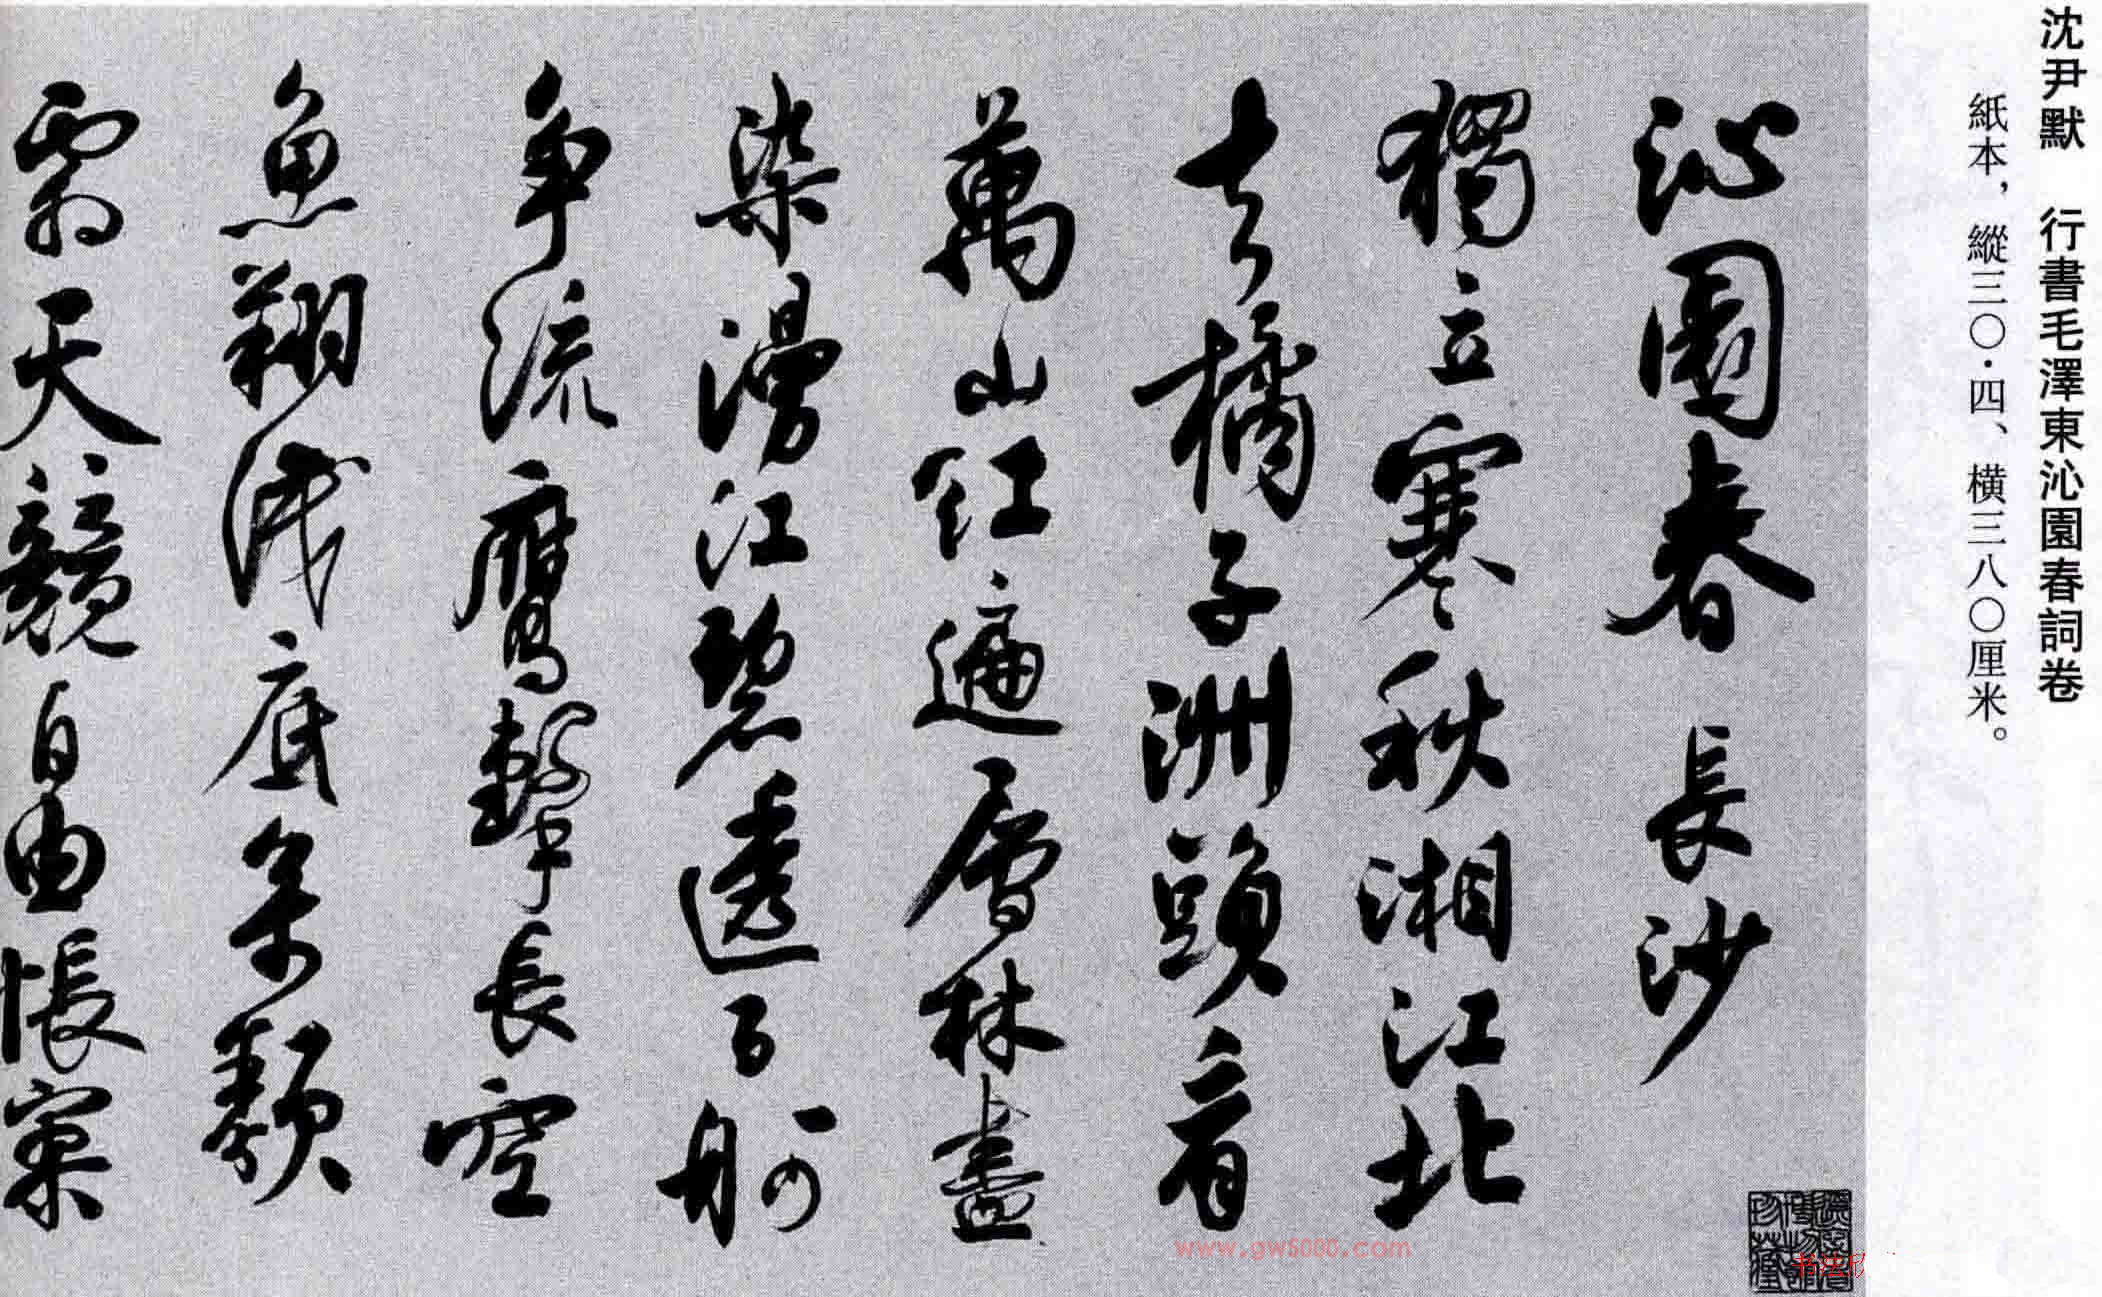 沈尹默　行書毛澤東沁園春詞卷
紙本，縱三〇·四、横三八〇厘米。
沁園春 長沙
獨立寒秋湘江北
去橘子洲頭看
萬山紅遍層林盡
染漫江碧透百舸
爭流鷹擊長空
魚翔淺底類
霜天競自由悵寥
www.gw5000.com
书法欣